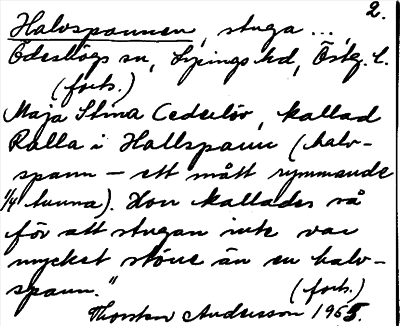 2.
Halvspannen, stuga ...,
Ödeshögs sn, Lysings hd, Östg. l.
(forts.)
Maja Stina Cederlöv, kallad
Kalla i Hallspann (halv-
spann – ett mått rymmande
1/4 tunna). Hon kallades så
för att stugan inte var
mycket större än en halv-
spann."
(forts.)
Thorsten Andersson 1965.